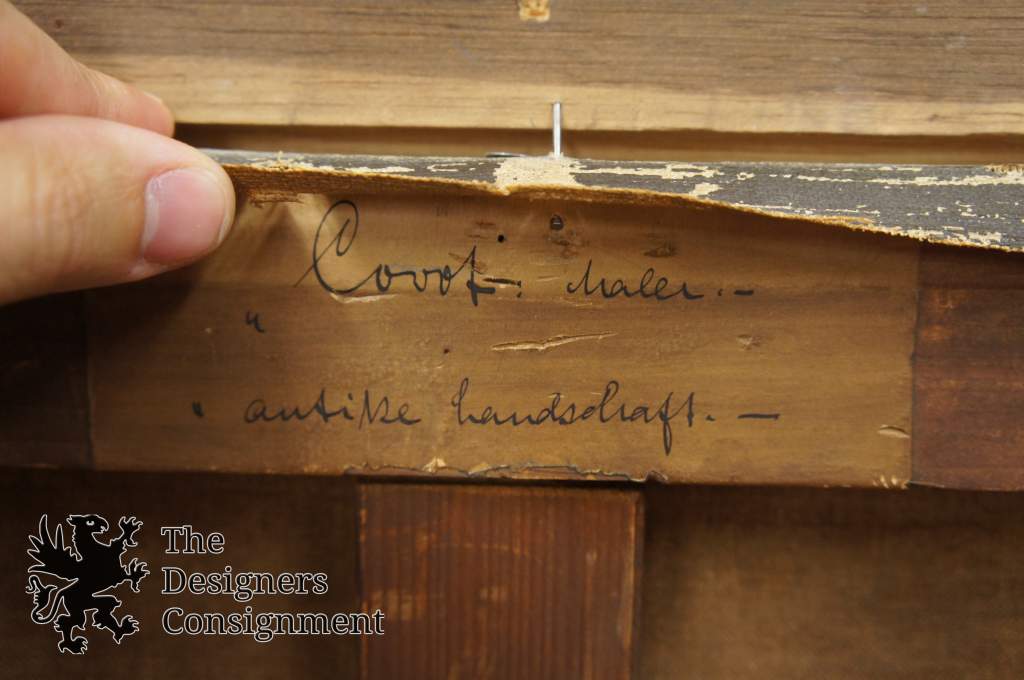 Corot: Maler.—
"
" antike Landschaft. —
The
Designers
Consignment